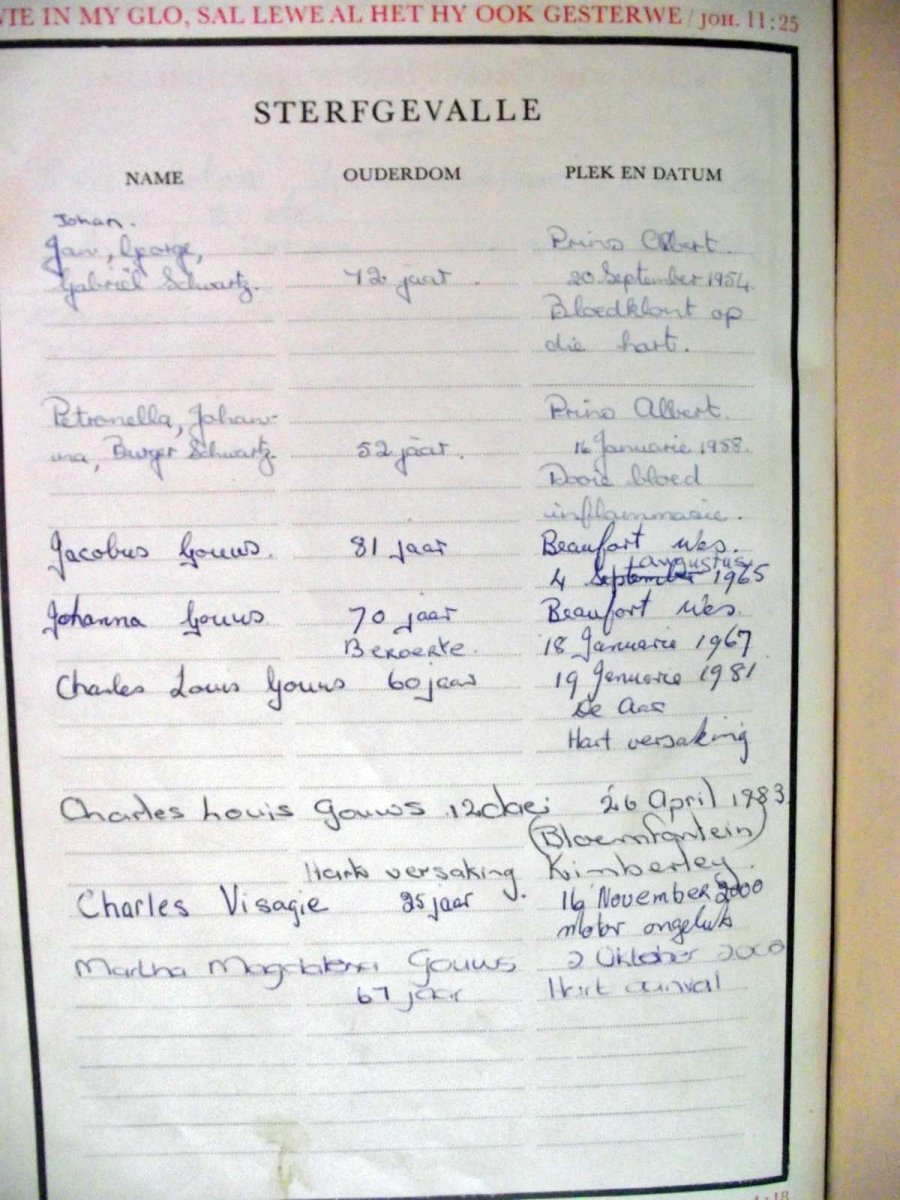 VIE IN MY GLO, SAL LEWE AL HET HY OOK GESTERWE / JOH. 11:25
STERFGEVALLE
NAME OUDERDOM PLEK EN DATUM
Johan.
Jan, George, Prins Albert.
Gabriël Schwartz. 72 jaar. 20 September 1954.
Bloedklont op
die hart.
Petronella, Johan- Prins Albert.
na, Burger Schwartz. 52 jaar. 16 Januarie 1958.
Dooie bloed
inflammasie.
Jacobus Gouws. 81 jaar Beaufort Wes.
Augustus
4 September 1965
Johanna Gouws. 70 jaar Beaufort Wes.
Beroerte. 18 Januarie 1967
Charles Louis Gouws 60 jaar 19 Januarie 1981
De Aar
Hart versaking
Charles Louis Gouws 12 dae 26 April 1983.
(Bloemfontein)
Hart versaking Kimberley.
Charles Visagie 25 jaar. 16 November 2000
Motor ongeluk
Martha Magdalena Gouws 2 Oktober
67 jaar Hart aanval
:18